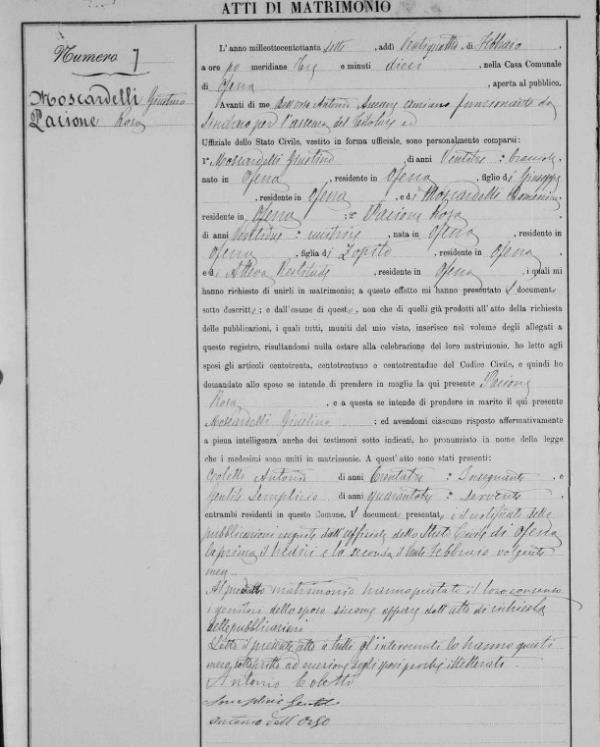 ATTI DI MATRIMONIO
Numero 7
Moscardelli Giustino
Pacione Rosa
L'anno milleottocentottanta sette, addì Ventiquattro di Febbraio
a ore po meridiane tre e minuti dieci, nella Casa Comunale
di Ofena, aperta al pubblico.
Avanti di me dell'Orso Antonio funzionante da
Sindaco per l'assenza del titolare ed
Uffiziale dello Stato Civile, vestito in forma uffiziale, sono personalmente comparsi:
1° Moscardelli Giustino di anni Ventitre:
nato in Ofena, residente in Ofena, figlio di Giuseppe
, residente in Ofena, e di Moscardelli Domenica
residente in Ofena: 2° Pacione Rosa
di anni, nata in Ofena, residente in
Ofena, figlia di Zopito residente in Ofena
e di, residente in Ofena, i quali mi
hanno richiesto di unirli in matrimonio; a questo effetto mi hanno presentato i document
sotto descritti; e dall'esame di questi, non che di quelli già prodotti all'atto della richiesta
delle pubblicazioni, i quali tutti, muniti del mio visto, inserisco nel volume degli allegati a
questo registro, risultandomi nulla ostare alla celebrazione del loro matrimonio, ho letto agli
sposi gli articoli centotrenta, centotrentuno e centotrentadue del Codice Civile, e quindi ho
domandato allo sposo se intende di prendere in moglie la qui presente Pacione
Rosa, e a questa se intende di prendere in marito il qui presente
Moscardelli Giustino: ed avendomi ciascuno risposto affermativamente
a piena intelligenza anche dei testimoni sotto indicati, ho pronunziato in nome della legge
che i medesimi sono uniti in matrimonio. A quest'atto sono stati presenti:
Coletti Antonio di anni trentatre: Insegnante e
Gentile Semplicio di anni: servente
entrambi residenti in questo Comune. I document presentati i certificati delle
pubblicazioni eseguite dall'uffiziale dello Stato Civile di Ofena
la prima il tredici e la seconda il venti Febbraio volgente
mese
Al predetto matrimonio hanno prestato il loro consenso
i genitori dello sposo siccome appare dall'atto di richiesta
delle pubblicazioni
Letto il presente atto a tutti gl'intervenuti lo hanno questi
meco sottoscritto ad eccezione degli sposi perché illetterati
Antonio Coletti
Semplicio Gentile
Antonio dell'Orso